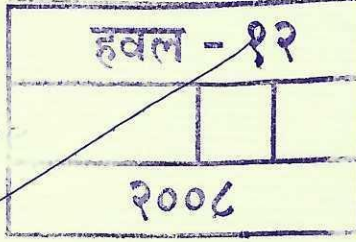 हवल - १२
२००८